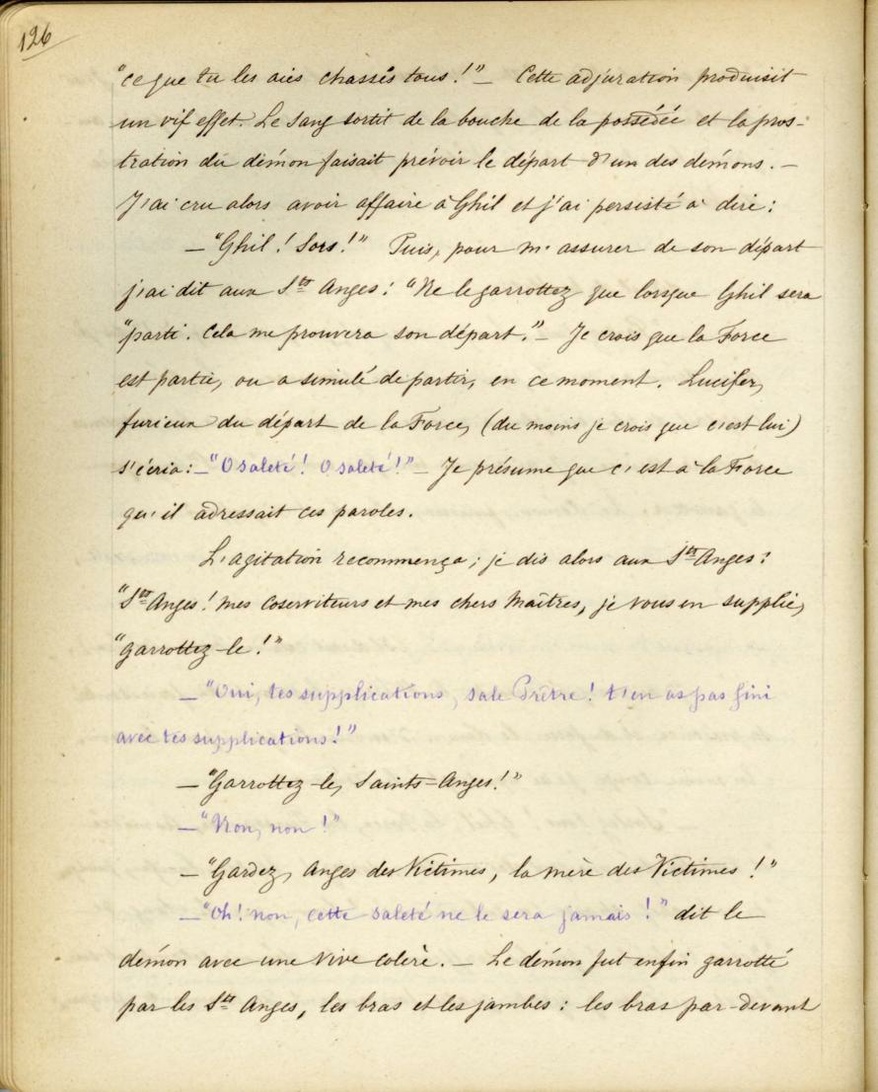 126
"ce que tu les aies chassés tous!" — Cette adjuration produisit
un vif effet. Le sang sortit de la bouche de la possédée et la pros-
tration du démon faisait prévoir le départ d'un des démons. —
J'ai cru alors avoir affaire à Ghil et j'ai persisté à dire:
— "Ghil! Sors!" Puis, pour m'assurer de son départ
j'ai dit aux Sts Anges: "Ne le garrottez que lorsque Ghil sera
"parti. Cela me prouvera son départ." — Je crois que la Force
est partie, ou a simulé de partir, en ce moment. Lucifer,
furieux du départ de la Force, (du moins je crois que c'est lui)
s'écria: — "O saleté! O saleté!" — Je présume que c'est à la Force
qu'il adressait ces paroles.
L'agitation recommença; je dis alors aux Sts Anges:
"Sts Anges! mes coserviteurs et mes chers Maîtres, je vous en supplie,
"garrottez-le!"
— "Oui, tes supplications, sale Prêtre! t'en as pas fini
avec tes supplications!"
— "Garrottez-le, Saints-Anges!"
— "Non, non!"
— "Gardez, Anges des Victimes, la mère des Victimes!"
— "Oh! non, cette saleté ne le sera jamais!" dit le
démon avec une vive colère. — Le démon fut enfin garrotté
par les Sts Anges, les bras et les jambes: les bras par-devant